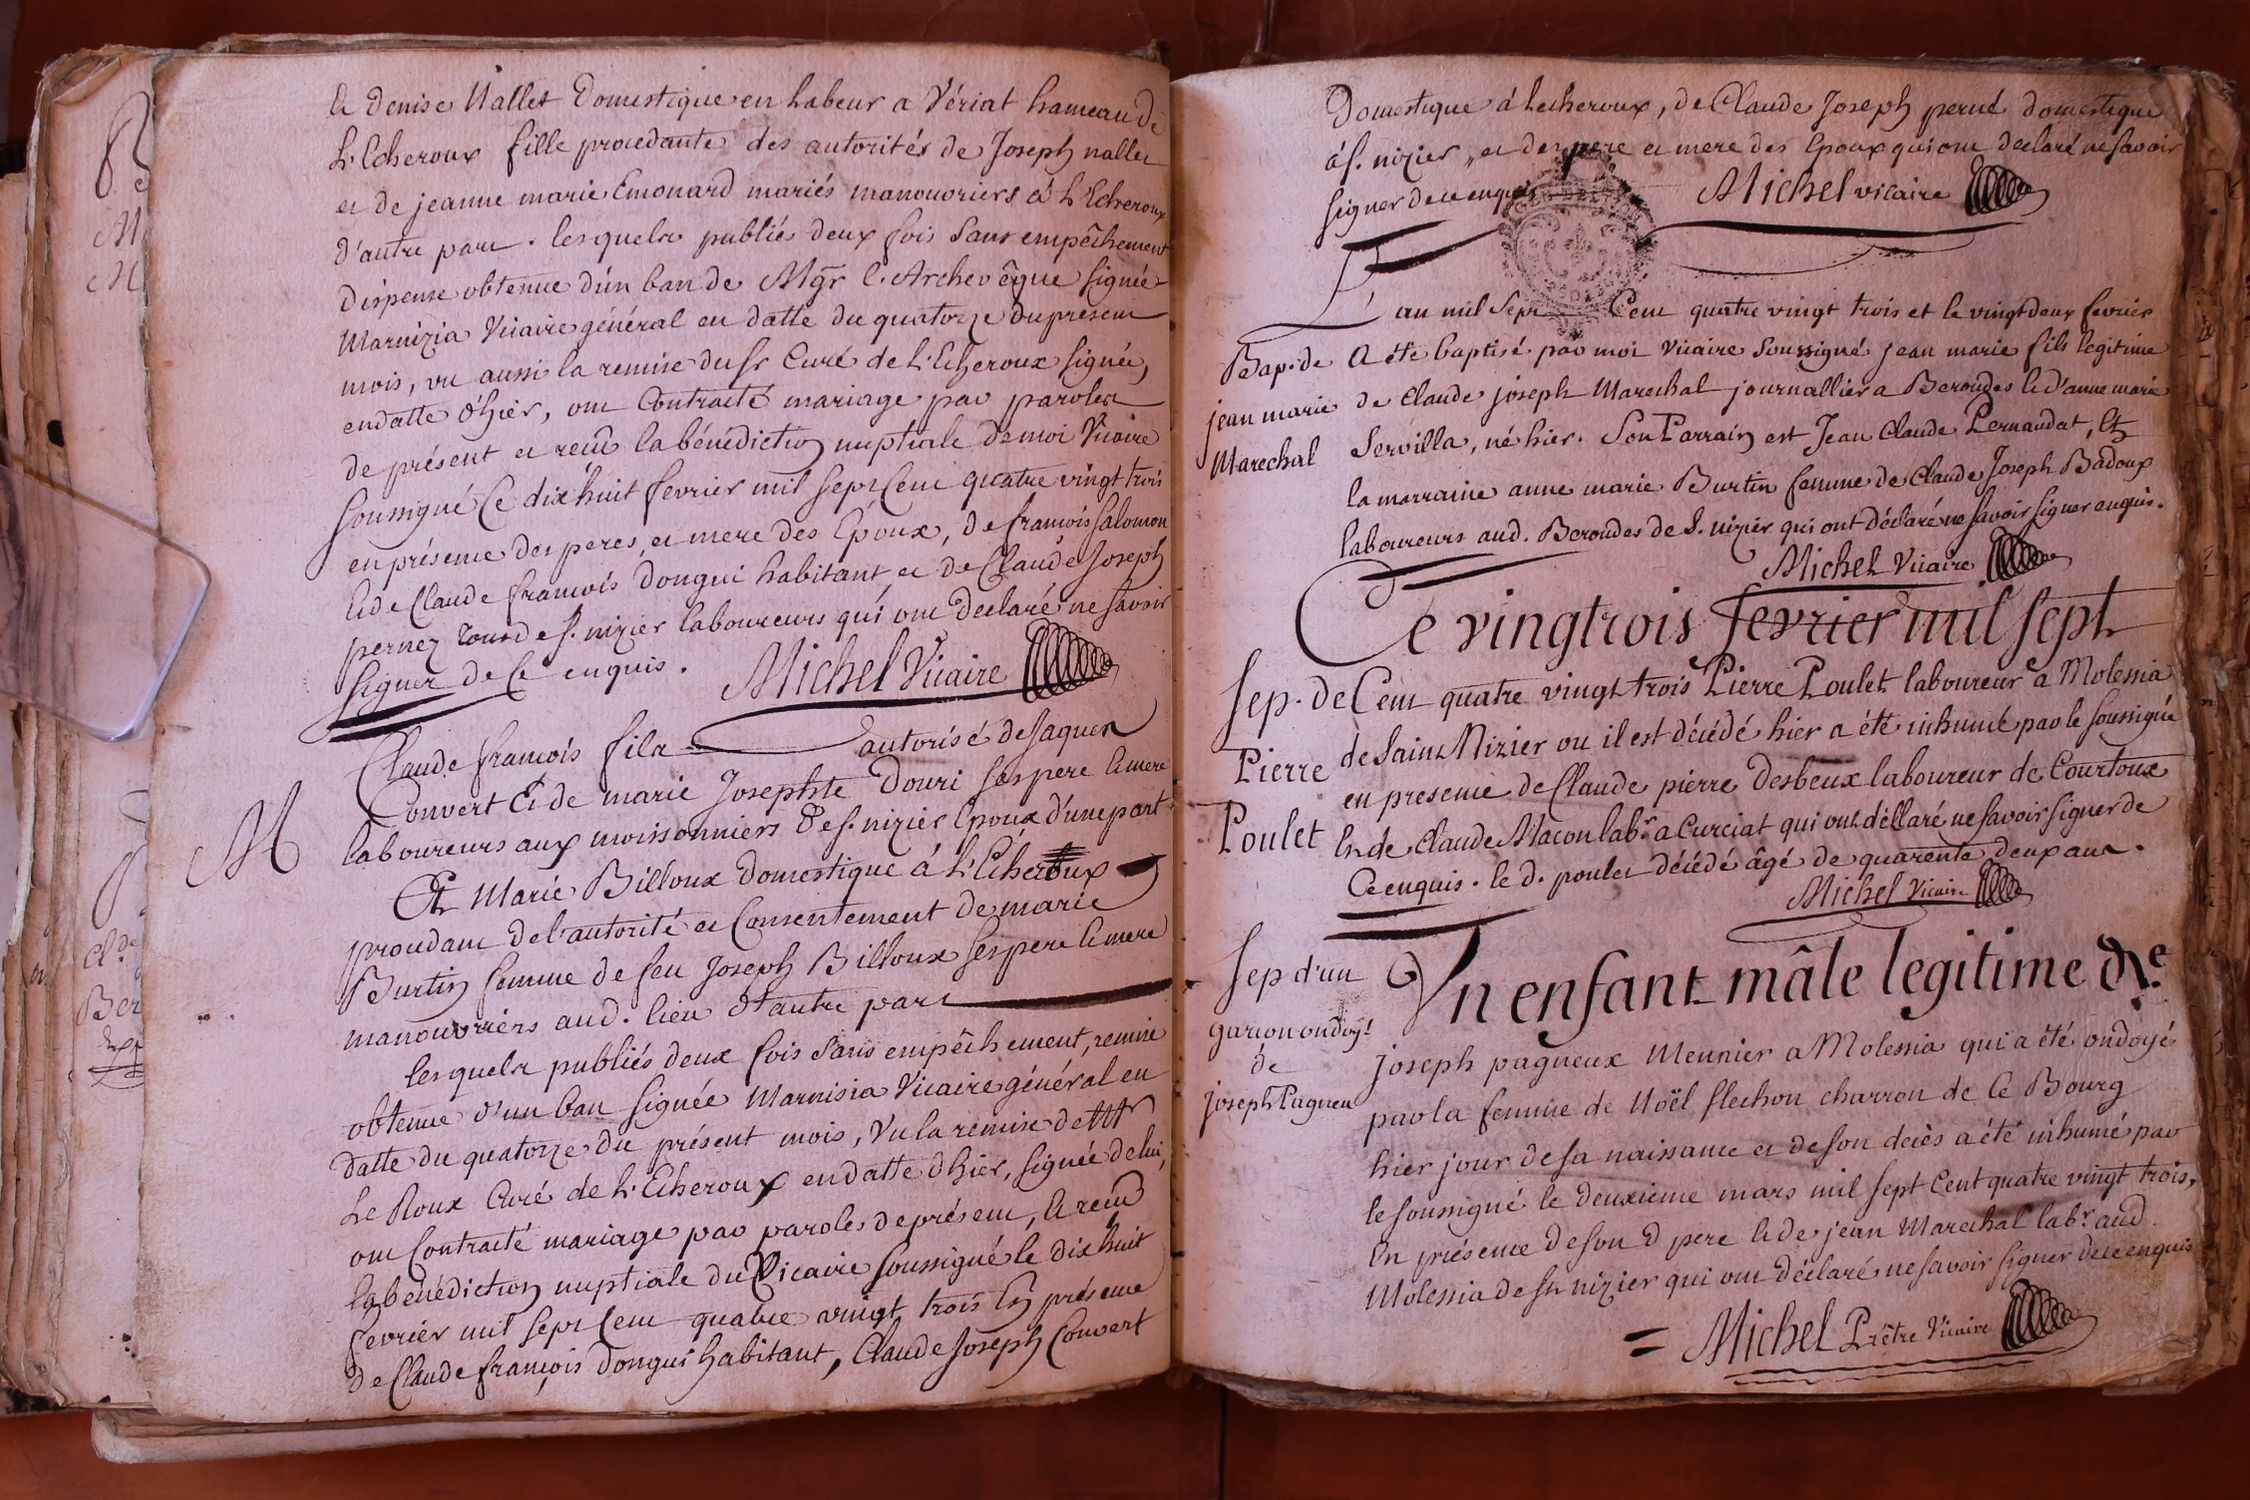 & denise Nallet Domestique en labeur a Vériat hameau de
L'Echeroux fille procedante des autorités de Joseph nallet
et de jeanne marie Emonard mariés manouvriers à L'Echeroux
d'autre part. lesquels publiés deux fois sans empêchement
dispense obtenue d'un ban de Mgr l'Archevêque signée
Marnizia Vicaire général en datte du quatorze du présent
mois, vu aussi la remise du sr Curé de L'Echeroux signée,
en datte d'hier, ont Contracté mariage par paroles
de présent et recu la bénédiction nuptiale de moi Vicaire
soussigné Ce dix huit fevrier mil sept Cent quatre vingt trois
en présence des peres, et mere des Epoux, de francois Salomon
& de Claude francois Dongui habitant et de Claude Joseph
pernez tous de st. nizier laboureurs qui ont declaré ne savoir
signer de Ce enquis. Michel Vicaire
Claude francois fils autorisé de Jaques
M Convert & de marie Josephte Douri ses pere & mere
laboureurs aux moissonniers de st. nizier Epoux d'une part
Et Marie Billoux domestique à L'Echeroux
procedant de l'autorité et Consentement de marie
Burtin femme de feu Joseph Billoux ses pere & mere
manouvriers aud. lieu d'autre part
lesquels publiés deux fois sans empêchement, remise
obtenue d'un ban signée Marnisia Vicaire général en
datte du quatorze du présent mois, Vu la remise de Mr
Le Roux Curé de L'Echeroux en datte d'hier, signée de lui,
ont Contracté mariage par paroles de présent, & recu
la bénédiction nuptiale du Vicaire soussigné le dix huit
fevrier mil sept Cent quatre vingt trois En présence
de Claude françois Dongui habitant, Claude Joseph Convert
Domestique à Lecheroux, de Claude Joseph perné domestique
à st. nizier, et des pere et mere des Epoux qui ont declaré ne savoir
signer de ce enquis Michel vicaire
L'an mil Sept Cent quatre vingt trois et le vingt deux fevrier
Bap. de A été baptisé par moi vicaire soussigné jean marie fils legitime
jean marie de Claude joseph Marechal journallier a Beroudes & d'anne marie
Marechal Servilla, né hier. Son Parrain est Jean Claude Pernaudat, Et
la marraine anne marie Burtin femme de Claude Joseph Badoux
laboureurs aud. Beroudes de S. nizier qui ont déclaré ne savoir signer enquis.
Michel Vicaire
Ce vingtrois fevrier mil sept
Sep. de Cent quatre vingt trois Pierre Poulet laboureur a Molessia
Pierre de Saint Nizier ou il est décédé hier a été inhumé par le soussigné
en presence de Claude pierre Desbeux laboureur de Courtoux
Poulet En de Claude Macon labr a Curciat qui ont déclaré ne savoir signer de
Ce enquis. le d. poulet décédé âgé de quarente deux ans.
Michel Vicaire
Sep d'un Un enfant mâle legitime de
garcon ondoyé
de joseph pagneux Meunier a Molessia qui a été ondoyé
joseph Pagneu par la femme de Noël flechon charron de Ce Bourg
hier jour de sa naissance et de son decès a été inhumé par
le soussigné le deuxieme mars mil sept Cent quatre vingt trois,
En présence de son d pere & de jean Marechal labr. aud.
Molessia de st nizier qui ont déclaré ne savoir signer de ce enquis
= Michel Prêtre Vicaire